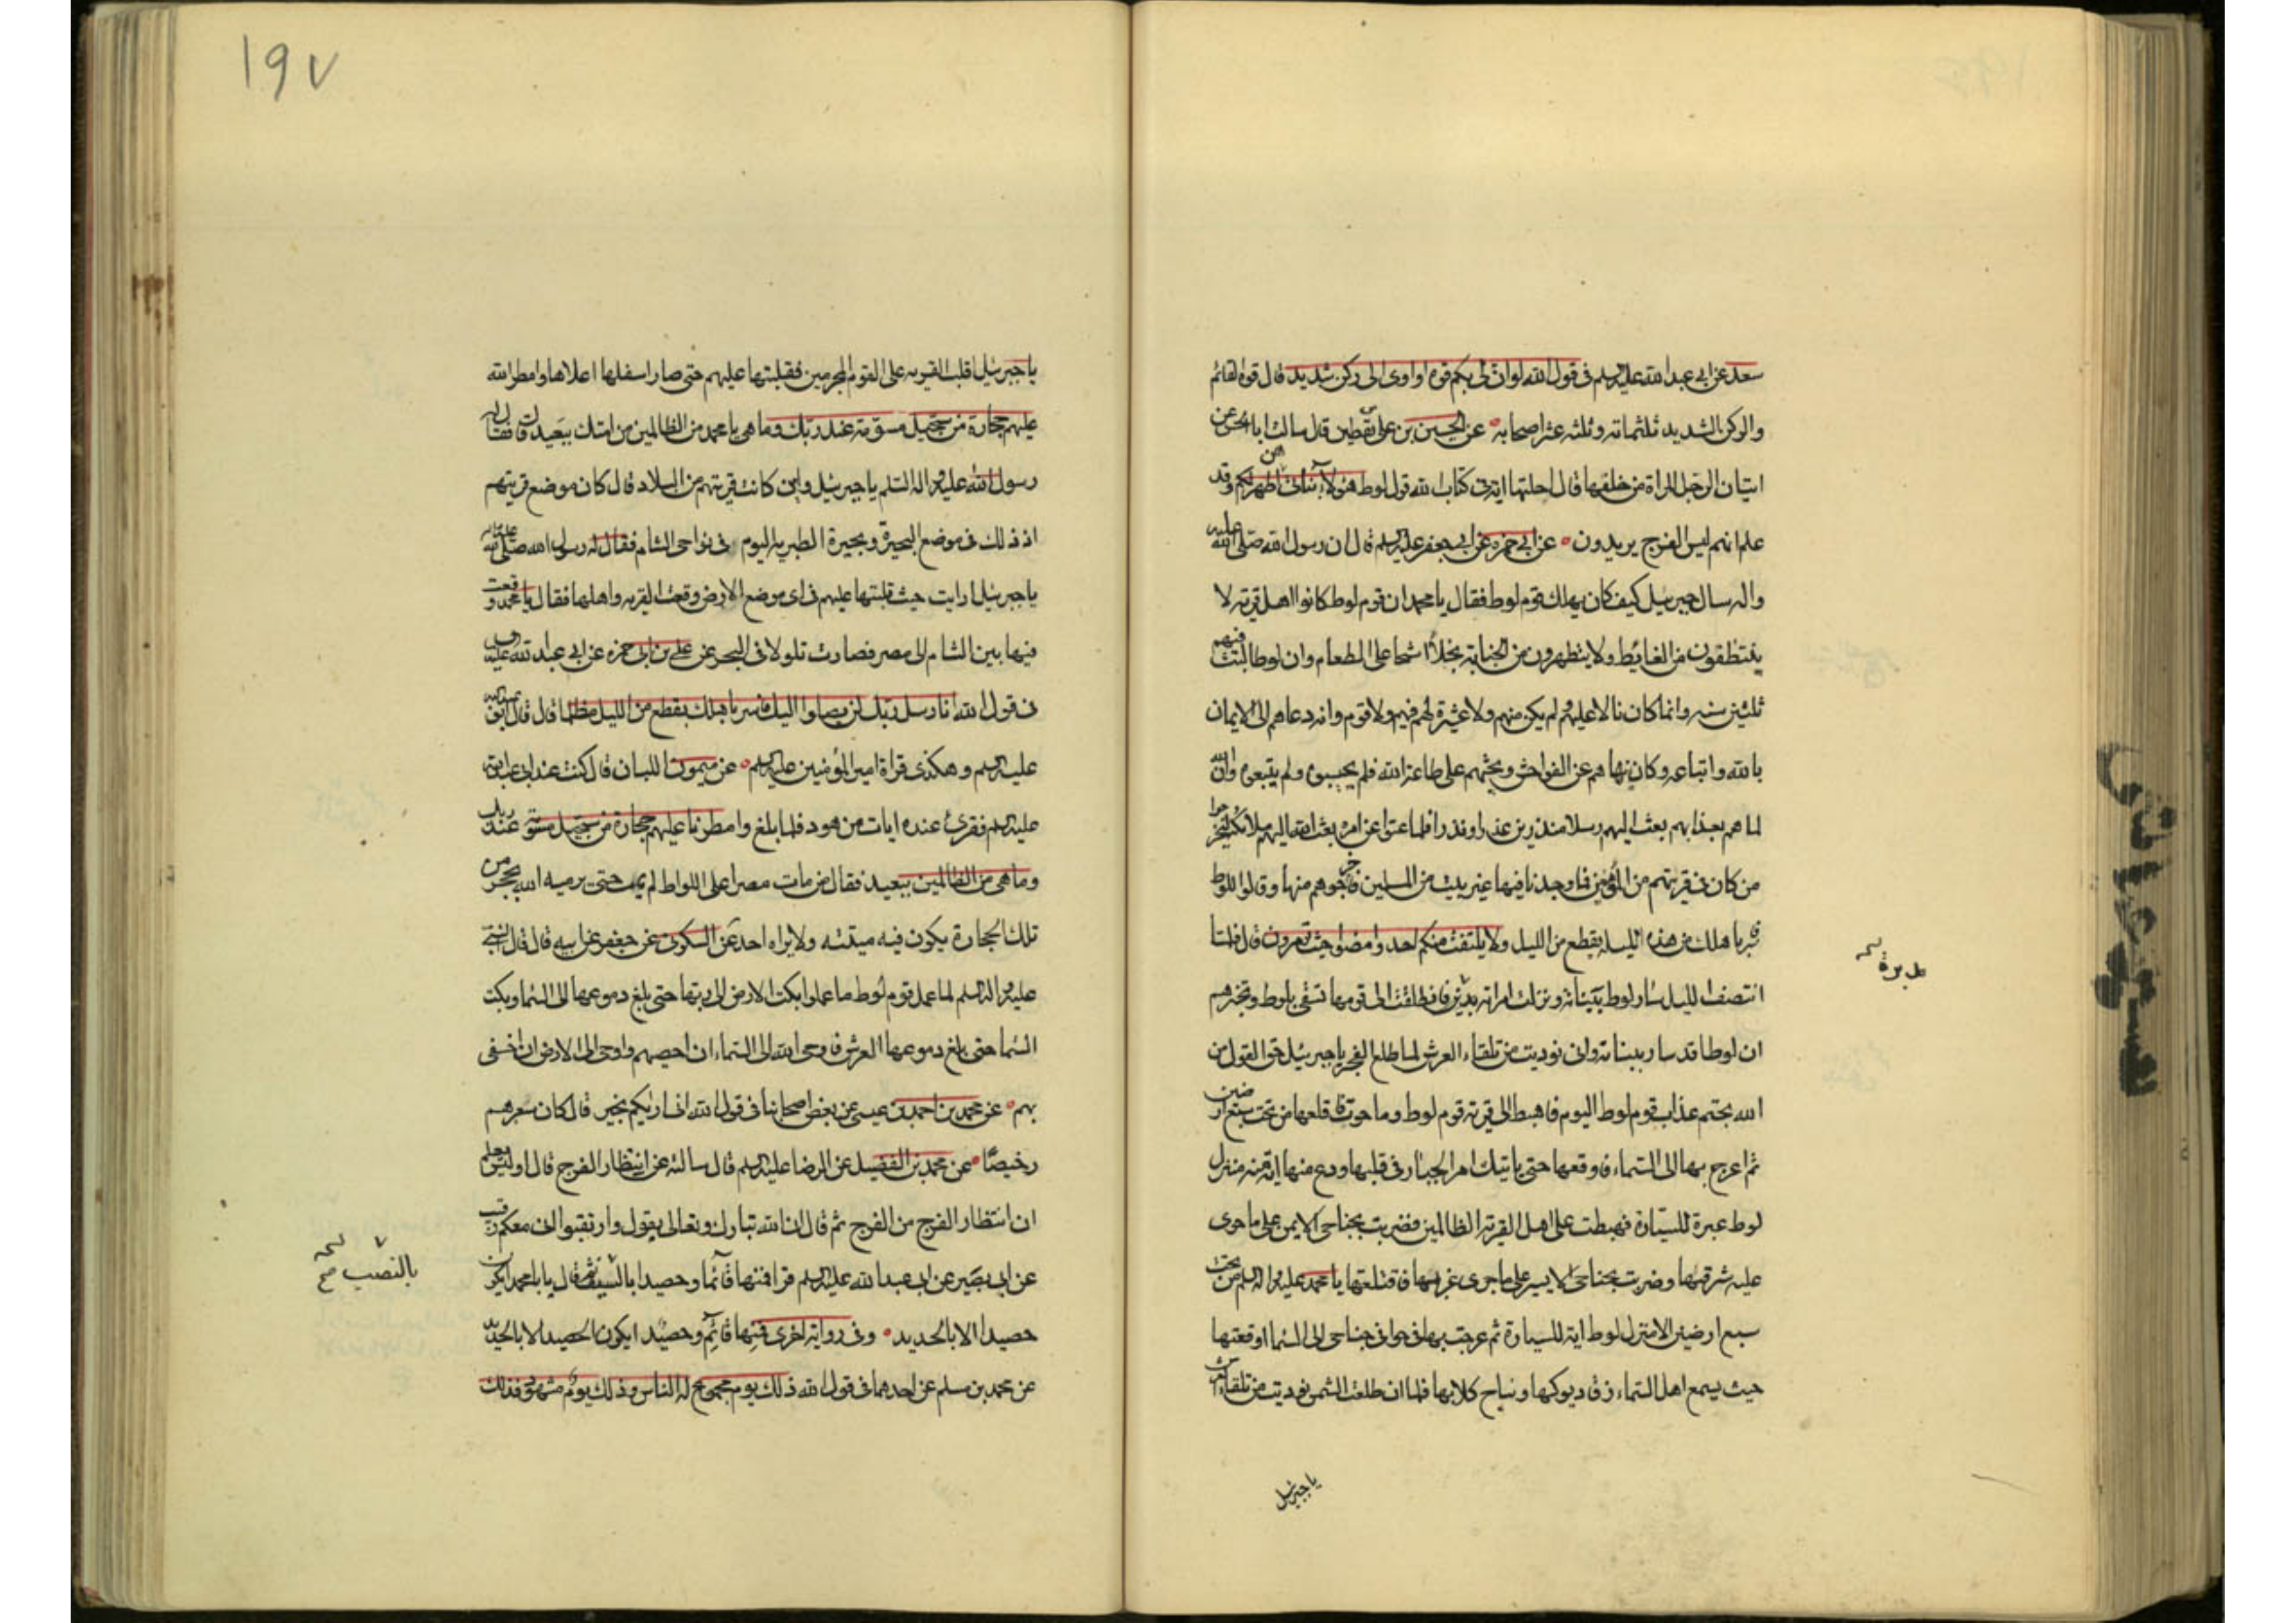 سعد عن ابي عبد الله عليه السلم في قول الله لو ان لي بكم قوة او اوى الى ركن شديد قال قوة القائم
والركن الشديد ثلثمائه وثلثه عشر اصحابه عن الحسين بن على بن يقطين قال سالت ابا الحسن عن
اتيان الرجل المراة من خلفها قال احلتها اية في كتاب الله قول لوط هؤلاء بناتى هن اطهر لكم وقد
علم انهم ليس الفرج يريدون عن ابي حمزه عن ابي جعفر عليه السلم قال ان رسول الله صلى الله عليه
واله سال جبرئيل كيف كان يهلك قوم لوط فقال يا محمد ان قوم لوط كانوا اهل قرية لا
يتنظفون من الغايط ولا يتطهرون من الجنابة بخلاء اشحا على الطعام وان لوطا لبث فيهم
ثلثين سنه وانما كان نازلا عليهم ولم يكن منهم ولا عشيرة لهم فيهم ولا قوم وانه دعاهم الى الايمان
بالله واتباعه وكان ينهاهم عن الفواحش ويحثهم على طاعة الله فلم يجيبوه ولم يتبعوه وان الله
لما هم بعذابهم بعث اليهم رسلا منذرين عذرا ونذرا فلما عتوا عن امره بعث الله اليهم ملائكة ليخرجوا
من كان في قريتهم من المؤمنين فما وجدنا فيها غير بيت من المسلمين فاخرجوهم منها وقالوا للوط
فاسر باهلك من هذه الليله بقطع من الليل ولا يلتفت منكم احد وامضوا حيث تؤمرون قال فلما
انتصف الليل سار لوط ببناته وتولت امراته مدبرة فانطلقت الى قومها تسعى بلوط وتخبرهم
ان لوطا قد سار ببناته وانى نوديت من تلقاء العرش لما طلع الفجر يا جبرئيل حق القول من
الله بحتم عذاب قوم لوط اليوم فاهبط الى قرية قوم لوط وما حوت فاقلعها من تحت سبع ارضين
ثم اعرج بها الى السماء فاوقفها حتى ياتيك امر الجبار في قلبها ودع منها اية بينه منزل
لوط عبرة للسيارة فهبطت على اهل القرية الظالمين فضربت بجناحى الايمن على ما حوى
عليه شرقيها وضربت بجناحى الايسر على ما حوى غربيها فاقتلعتها يا محمد عليه واله السلم من تحت
سبع ارضين الا منزل لوط اية للسيارة ثم عرجت بها في خوافى جناحى الى السما اوقفتها
حيث يسمع اهل السماء زقا ديوكها ونباح كلابها فلما ان طلعت الشمس نوديت من تلقاء العرش
مدبرة
يا جبرئيل
١٩٧
يا جبرئيل اقلب القريه على القوم المجرمين فقلبتها عليهم حتى صار اسفلها اعلاها وامطر الله
عليهم حجارة من سجيل مسومة عند ربك وما هى يا محمد من الظالمين من امتك ببعيد قال فقال له
رسول الله عليه واله السلم يا جبرئيل واين كانت قريتهم من البلاد قال كان موضع قريتهم
اذ ذلك في موضع البحيرة وبحيرة الطبريه اليوم في نواحى الشام فقال له رسول الله صلى الله عليه واله
يا جبرئيل ارايت حيث قلبتها عليهم في اى موضع الارض وقعت القريه واهلها فقال يا محمد وقعت
فيها بين الشام الى مصر فصارت تلولا في البحر عن على بن ابى حمزه عن ابي عبد الله عليه السلم
في قول الله انا رسل ربك لن يصلوا اليك فاسر باهلك بقطع من الليل مظلما قال قال ابو عبد الله
عليه السلم وهكذى قراة امير المؤمنين عليه السلم عن ميمون اللبان قال كنت عند ابى عبد الله
عليه السلم فقرئ عنده ايات من هود فلما بلغ وامطرنا عليهم حجارة من سجيل مسومة عند ربك
وما هى من الظالمين ببعيد فقال من مات مصرا على اللواط لم يمت حتى يرميه الله بحجر من
تلك الحجارة يكون فيه ميتته ولا يراه احد عن السكونى عن جعفر عن ابيه قال قال النبى
عليه واله السلم لما عمل قوم لوط ما عملوا بكت الارض الى ربها حتى بلغ دموعها الى السما وبكت
السما حتى بلغ دموعها العرش فاوحى الله الى السماء ان احصبهم واوحى الى الارض ان اخسفى
بهم عن محمد بن احمد بن عيسى عن بعض اصحابنا في قول الله انى اريكم بخير قال كان سعرهم
رخيصا عن محمد بن الفضيل عن الرضا عليه السلم قال سالته عن انتظار الفرج قال او ليس تعلم
ان انتظار الفرج من الفرج ثم قال ان الله تبارك وتعالى يقول وارتقبوا انى معكم رقيب
عن ابى بصير عن ابى عبد الله عليه السلم قرا فمنها قائما وحصيدا بالنصب ثم قال يا با محمد لا يكون
حصيدا الا بالحديد وفى رواية اخرى فمنها قائم وحصيد ايكون الحصيد الا بالحديد
عن محمد بن مسلم عن احدهما في قول الله ذلك يوم مجموع له الناس وذلك يوم مشهود فذلك
بالنصب صح